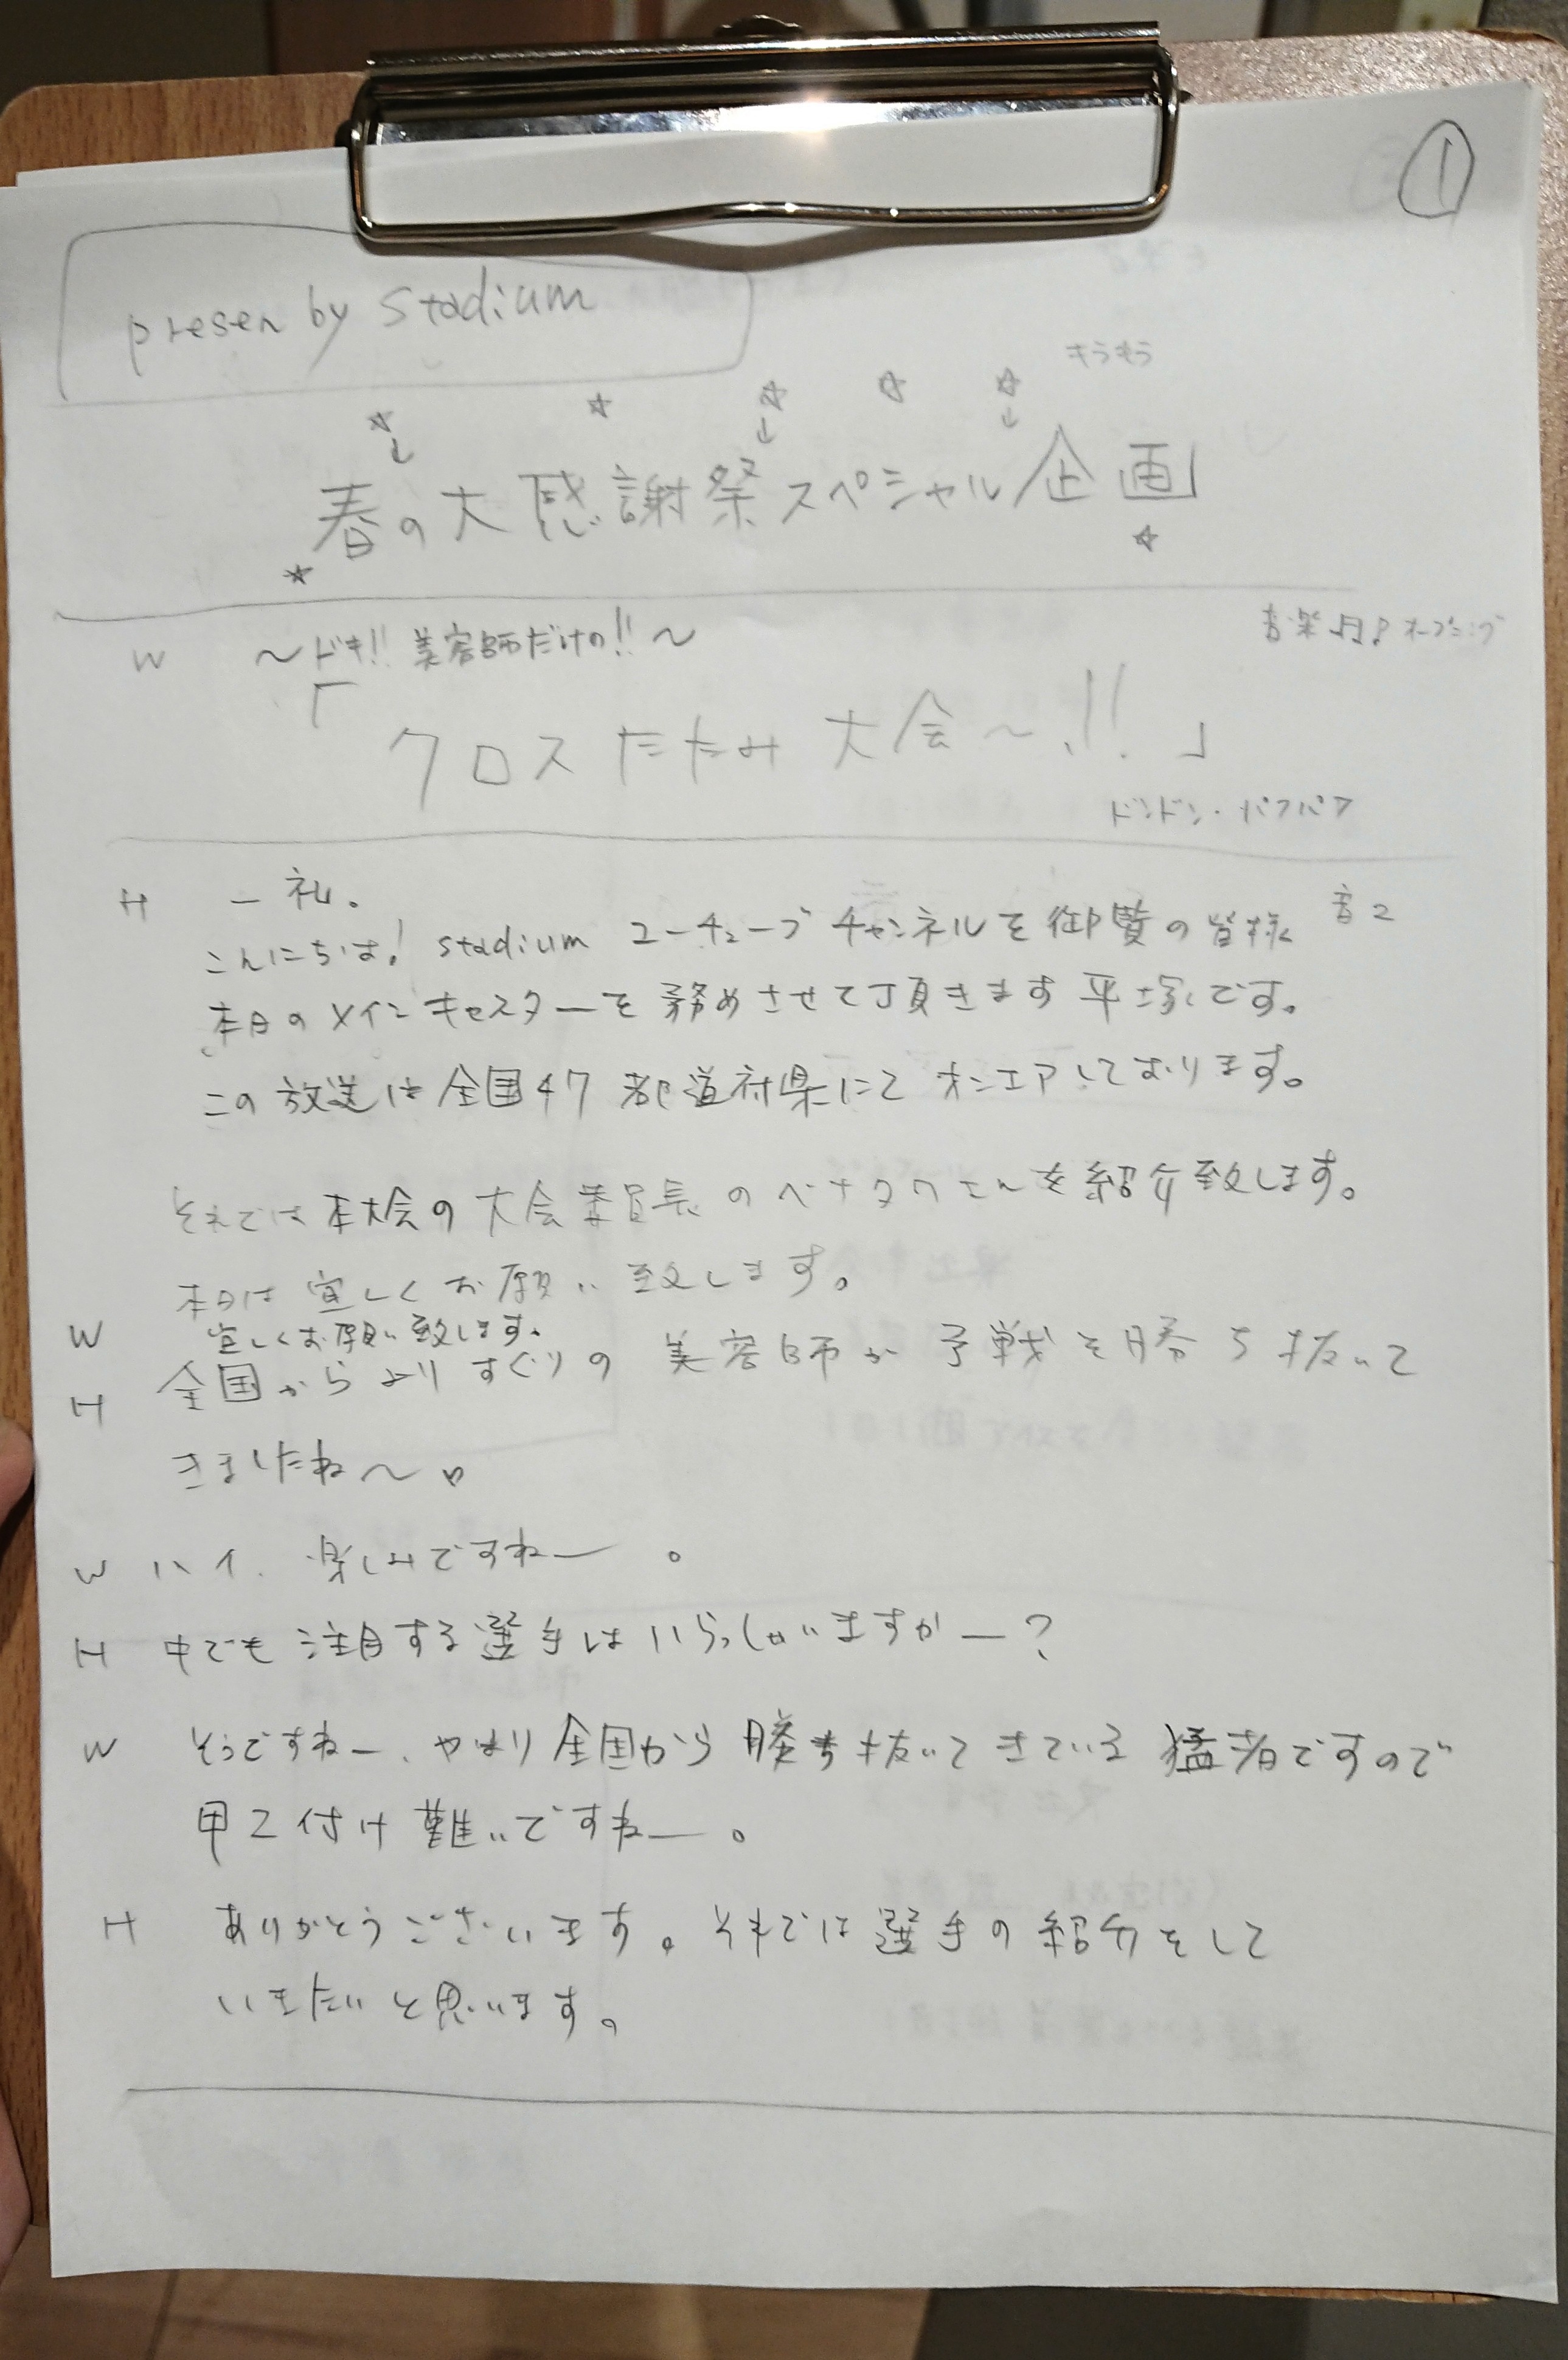 ①
presen by stadium
キラキラ
春の大感謝祭スペシャル企画
W 〜ドキ!!美容師だけの!!〜
音楽 オープニング
「クロスたたみ大会〜!!」
ドンドン・パフパフ
H 一礼。
こんにちは! stadium ユーチューブチャンネルを御覧の皆様 音2
本日のメインキャスターを務めさせて頂きます平塚です。
この放送は全国47都道府県にてオンエアしております。
それでは本大会の大会委員長のベナタクさんを紹介致します。
本日は宜しくお願い致します。
W 宜しくお願い致します。
H 全国からよりすぐりの美容師が予戦を勝ち抜いて
きましたね〜。
W ハイ、楽しみですねー。
H 中でも注目する選手はいらっしゃいますかー?
W そうですねー、やはり全国から勝ち抜いてきている猛者ですので
甲乙付け難いですねー。
H ありがとうございます。それでは選手の紹介をして
いきたいと思います。